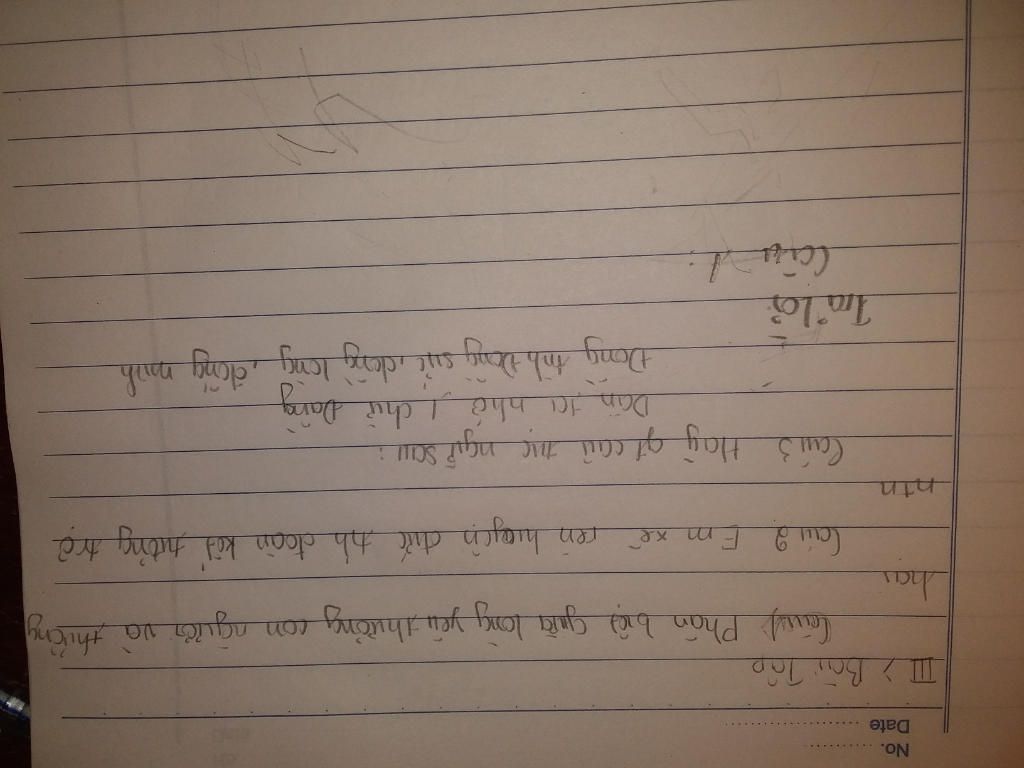 No. ............
Date ....................
III > Bài Tập
Câu 1, Phân biệt giữa lòng yêu thường con người và thường
hại
Câu 2 Em xẽ rèn luyện đức tih đoàn kết tường trợ
ntn
Câu 3 Hãy gt câu tục ngữ sau:
Dân ta nhớ 1 chữ Đồng
Đồng tìh Đồng sức, đồng lòng, đồng minh
Trả lời
Câu 1: